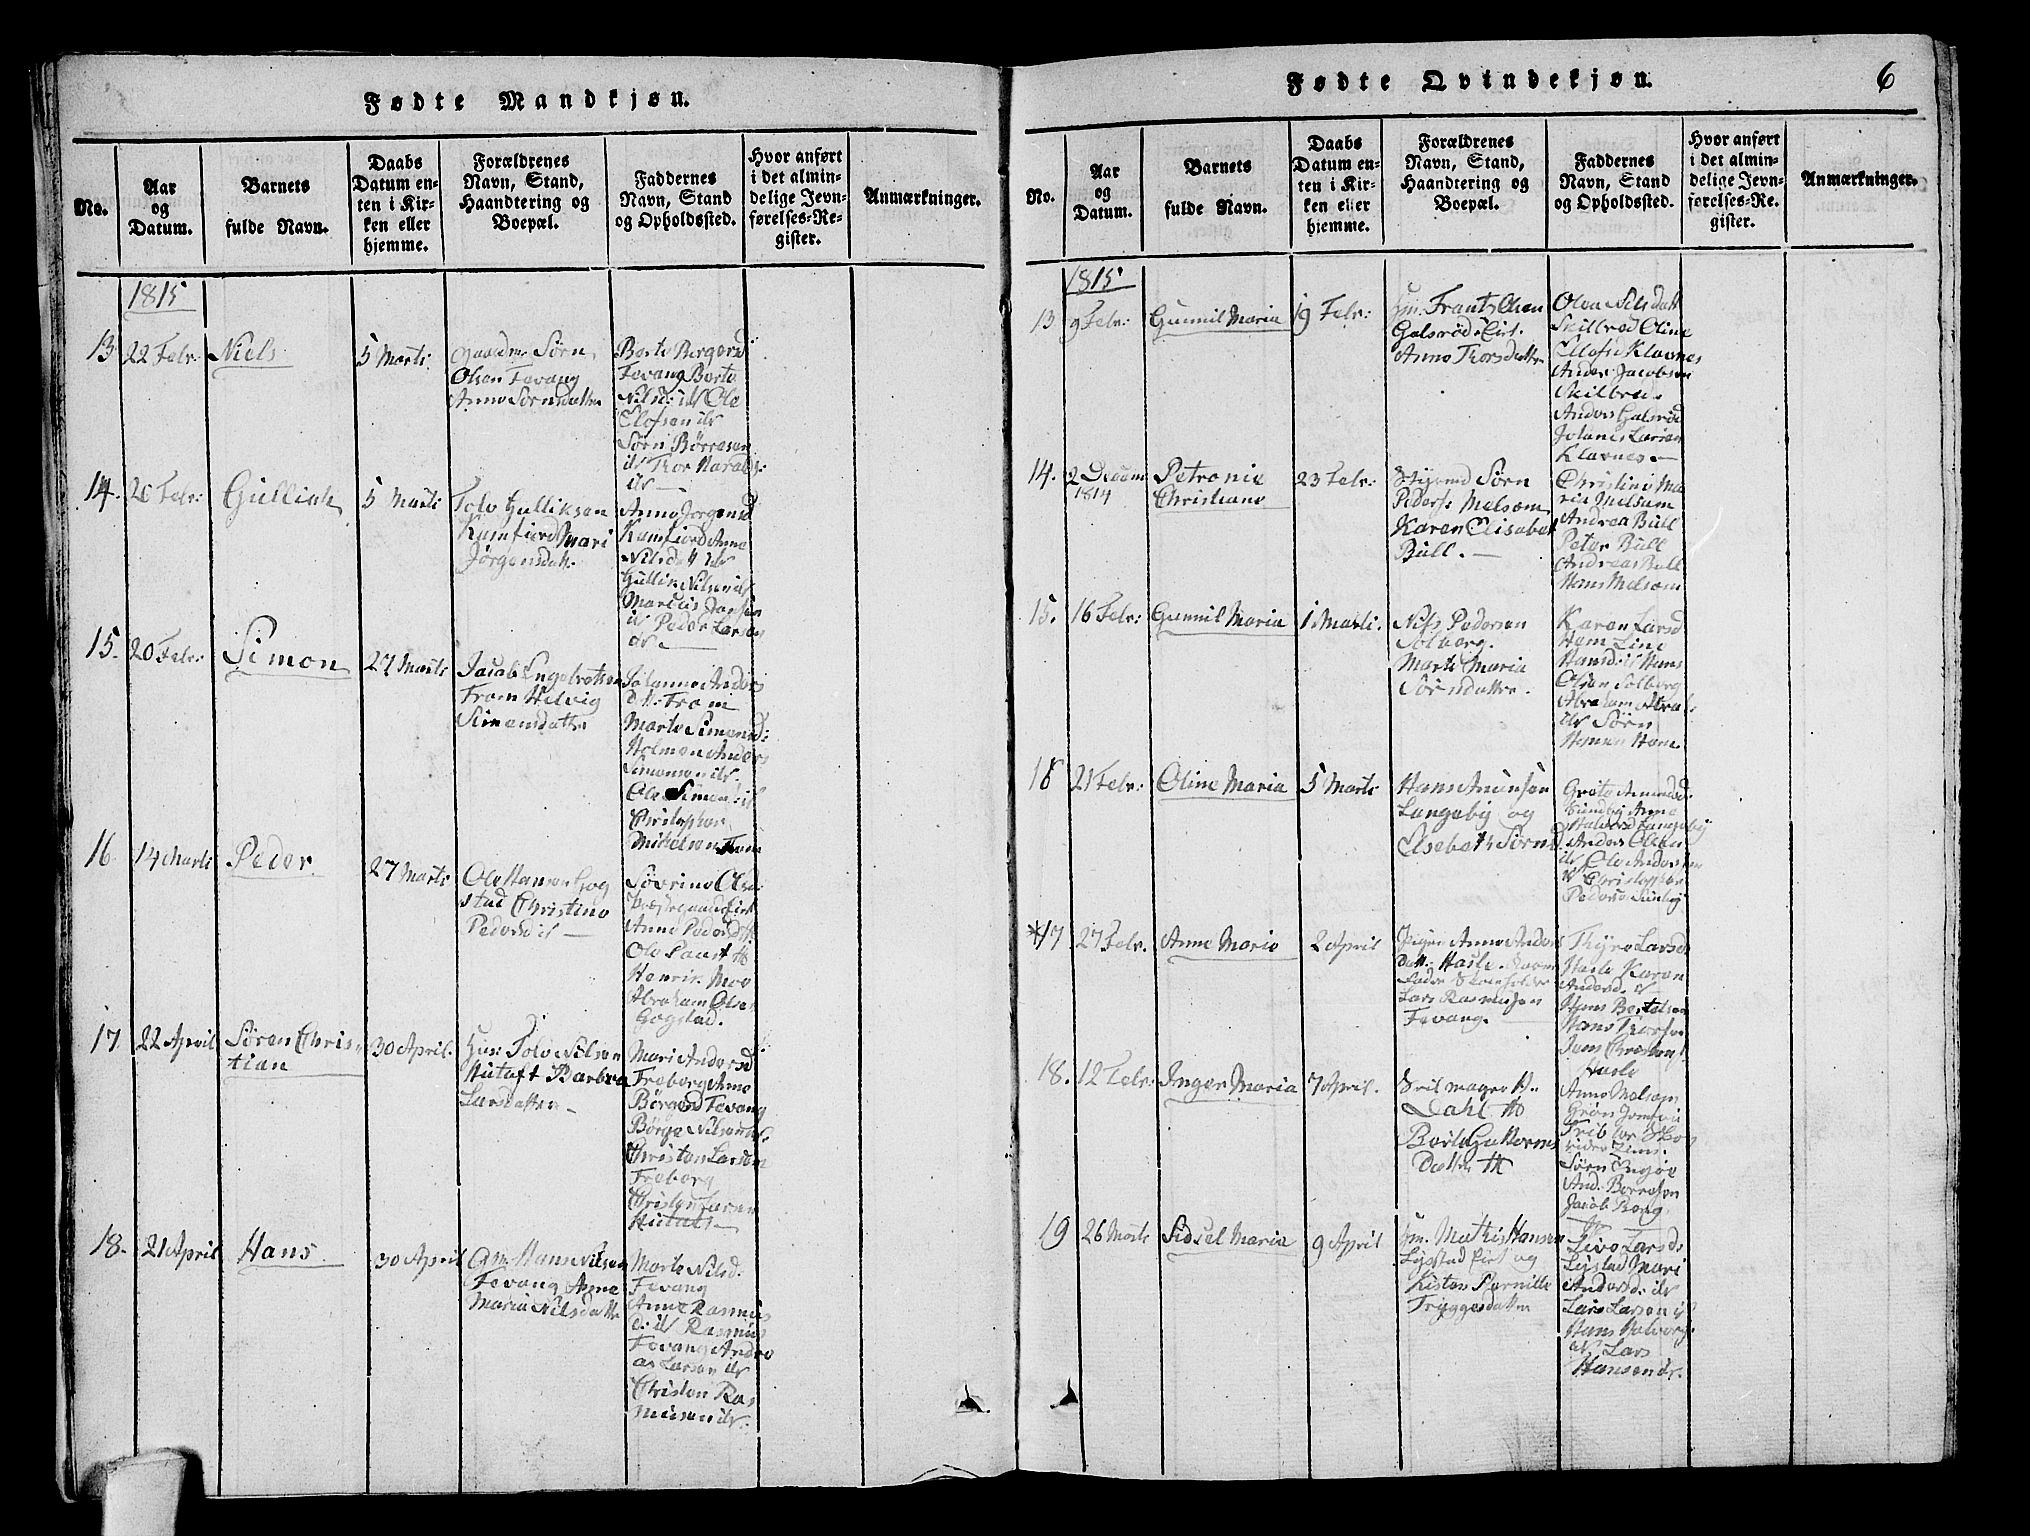 Fødte Mandkjøn.
No.
Aar
og
Datum.
Barnets
fulde Navn.
Daabs
Datum en-
ten i Kir-
ken eller
hjemme.
Forældrenes
Navn, Stand,
Haandtering og
Boepæl.
Faddernes
Navn, Stand
og Opholdssted.
Hvor anført
i det almin-
delige Jevn-
førelses-Re-
gister.
Anmærkninger.
1815
13
22 Febr:
Niels
5 Marts
Sørn
Olsen Fevang
Anne Sørnsdatter
Fevang Berte
Nilsd: ds Ole
Elofsen ds
Sørn Børresen
ds Thor
ds
14.
Febr:
Gullick
5 Marts
Tolv Gulliksen
Kamfiord Mari
Jørgensdatt.
Anne Jørgensd
Kamfiord Anne
Nilsdatt ds
Gullik Nilsen ds
Marcus
ds Peder Larsen
ds
15.
20 Febr:
Simon
27 Marts
Jacob Engebretsen
Fram Helvig
Simensdatter
Johanne Anders
dtt: Fram
Marte Simensd:
Holman Anders
Simonsen ds.
Ole Simens: ds
Christopher
Mickelsen Fram
16
14 Marts
Peder.
27 Marts
Ole Hansen Gog
stad Christine
Pedersd ds
Søvrine Olsd:
Anne Pedersd H
Ole Paust H
Henrik Moe
Abraham Olsen
Gogstad.
17
22 April
Søren Chris-
tian
30 April.
Huu: Tolv Nilsen
Hutoft Barbra
Larsdatter
Mari Andersd
Freberg Anne
Børgesd Fevang
Børge Nilsen ds.
Christen Larsen
Freberg
Christen Larsen
Hutoft
18.
21 April
Hans.
30 April
Gm. Hans Nilsen
Fevang Anne
Maria Nilsdatter
Marte Nilsd.
Fevang
Anne Rasmus
d: ds Rasmus
Fevang Andre
as Larsen ds
Christen Ras
musen ds.
Fødte Qvindekjøn.
6
No.
Aar
og
Datum.
Barnets
fulde Navn.
Daabs
Datum en-
ten i Kir-
ken eller
hjemme.
Forældrenes
Navn, Stand,
Haandtering og
Boepæl.
Faddernes
Navn, Stand
og Opholdssted.
Hvor anført
i det almin-
delige Jevn-
førelses-Re-
gister.
Anmærkninger.
1815
13
9 Febr:
Gunnil Maria
19 Febr:
Hm. Frants Olsen
Galsrød Eie.
Anne Thorsdatter
Olea Nilsdatt
Skilbred Oline
Ellefsd Klavnes
Anders Jacobsen
Skilbred
Anders Galsrød
Johanes Larsen
Klavnes
14.
2 Decem
1814
Petronie
Christiane
23 Febr:
Sørn
Peders: Melsom
Karen Elisabet
Bull.
Christine Ma
ria Melsum
Andrea Bull
Peter Bull
Andreas Bull
Hans Melsom
15.
16 Febr:
Gunnil Maria
1 Marts.
Nils Pedersen
Solberg.
Marte Maria
Sørnsdatter.
Karen Larsd
Hem Line
Hansd: ds Hans
Olsen Solberg
Abraham Abrah:
ds Sørn
Hansen Hem
16
21 Febr:
Oline Maria
5 Marts
Hans Anunsen
Langebÿ og
Elsebeth Sørnsd.
Grete Amundsd.
Sundby Anne
Halvorsd Langebÿ
Anders Olsen
ds Ole Andersen
ds Christopher
Peders: Sunbÿ
*17
27 Febr.
Anne Marie
2 April
Pigen Anne Anders
datt: Hasle. Barne
fader
Lars Rasmusen
Fevang.
Thÿre Larsd:
Hasle Karen
Andersd. ds
Hans Bertelsen
Hans Thorsen
Jens Christens:
Hasle
18.
12 Febr:
Inger Maria
7 April.
H.
Dahl H
Berte Guttorms
Datter H
Anne Melsom
Grøn Jomfru
Sørn Engøe
And. Børresen
Jacob Borg
19
26 Marts
Sidsel Maria
9 April
Hm. Mathis Hansen
Lÿstad Eiet og
Kisten Pernille
Trÿggesdatter
Live Larsd:
Lÿstad Mari
Andersd: ds
Lars Larsen ds
Hans Halvorg:
ds. Lars
Hansen ds.